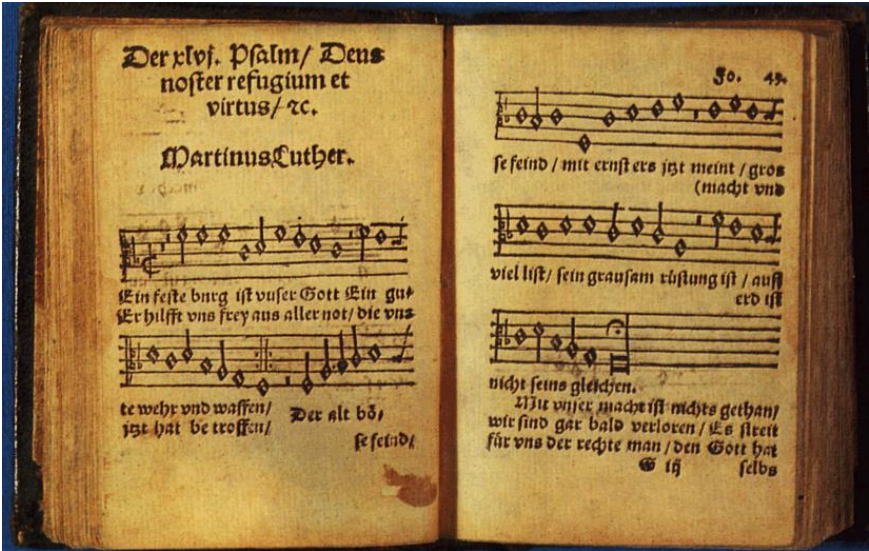 Der xlvj. Psalm/ Deus
noster refugium et
virtus/ ꝛc.
Martinus Luther.
Ein feste burg ist vnser Gott Ein gu⸗
Er hilfft vns frey aus aller not/ die vns
te wehr vnd waffen/ Der alt bö⸗
jtzt hat be troffen/
se feind/
Fo. 43.
se feind / mit ernst ers jtzt meint / gros
(macht vnd
viel list/ sein grausam rüstung ist / auff
erd ist
nicht seins gleichen.
Mit vnser macht ist nichts gethan/
wir sind gar bald verloren / Es streit
für vns der rechte man / den Gott hat
G iij selbs